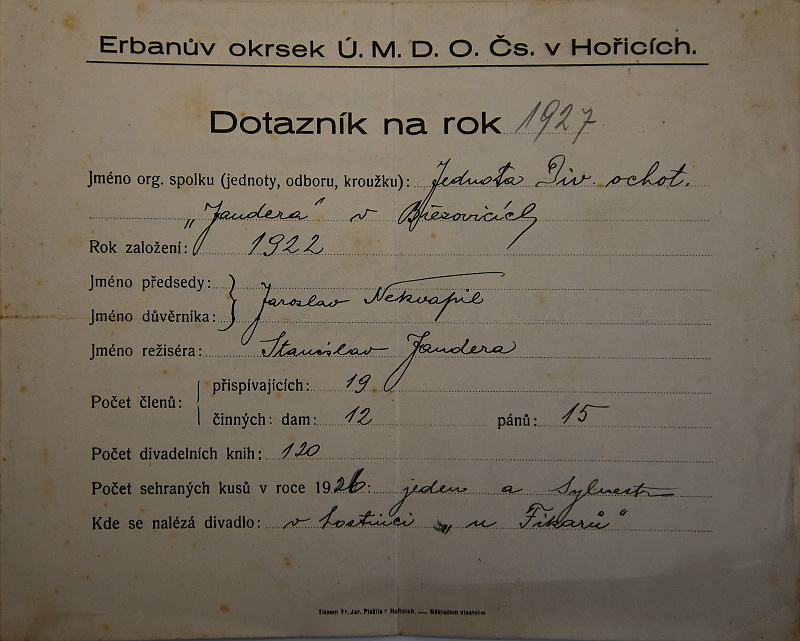 Erbanův okrsek Ú. M. D. O. Čs. v Hořicích.
Dotazník na rok 1927
Jméno org. spolku (jednoty, odboru, kroužku): Jednota Div. ochot.
„Jandera“ v Březovicích
Rok založení: 1922
Jméno předsedy:
Jméno důvěrníka: } Jaroslav Nekvapil
Jméno režiséra: Stanislav Jandera
Počet členů: přispívajících: 19
činných: dam: 12 pánů: 15
Počet divadelních knih: 120
Počet sehraných kusů v roce 1926: jeden a Sylvestr
Kde se nalézá divadlo: v hostinci „u Fikarů“
Tiskem Fr. Jar. Plešila v Hořicích. — Nákladem vlastním